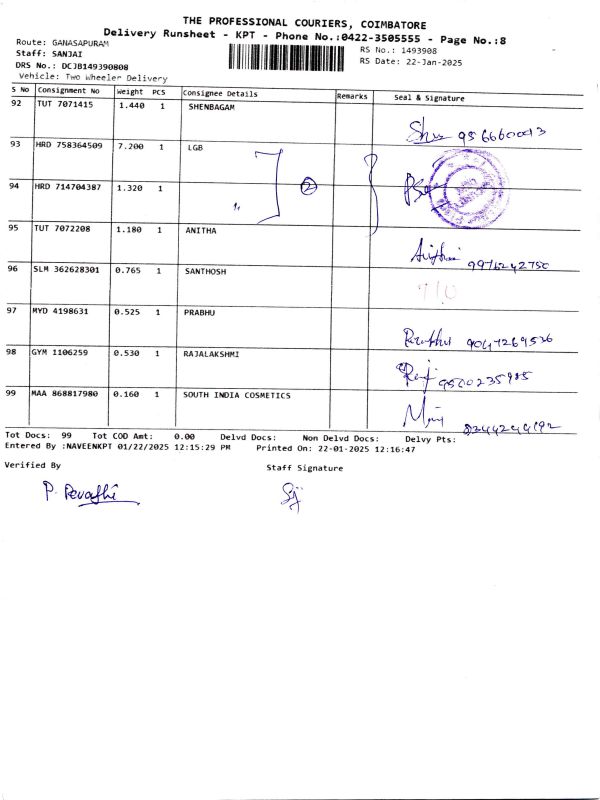 THE PROFESSIONAL COURIERS, COIMBATORE
Delivery Runsheet - KPT - Phone No.:0422-3505555 - Page No.:8
Route: GANASAPURAM
RS No.: 1493908
Staff: SANJAI
RS Date: 22-Jan-2025
DRS No.: DCJB149390808
Vehicle: Two Wheeler Delivery
S No Consignment No Weight PCS Consignee Details Remarks Seal & Signature
92 TUT 7071415 1.440 1 SHENBAGAM
93 HRD 758364509 7.200 1 LGB
94 HRD 714704387 1.320 1 2
95 TUT 7072208 1.180 1 ANITHA
9976242750
96 SLM 362628301 0.765 1 SANTHOSH
97 MYD 4198631 0.525 1 PRABHU
Prabhu 9047269536
98 GYM 1106259 0.530 1 RAJALAKSHMI
99 MAA 868817980 0.160 1 SOUTH INDIA COSMETICS
Tot Docs: 99 Tot COD Amt: 0.00 Delvd Docs: Non Delvd Docs: Delvy Pts:
Entered By :NAVEENKPT 01/22/2025 12:15:29 PM Printed On: 22-01-2025 12:16:47
Verified By Staff Signature
P. Revathi